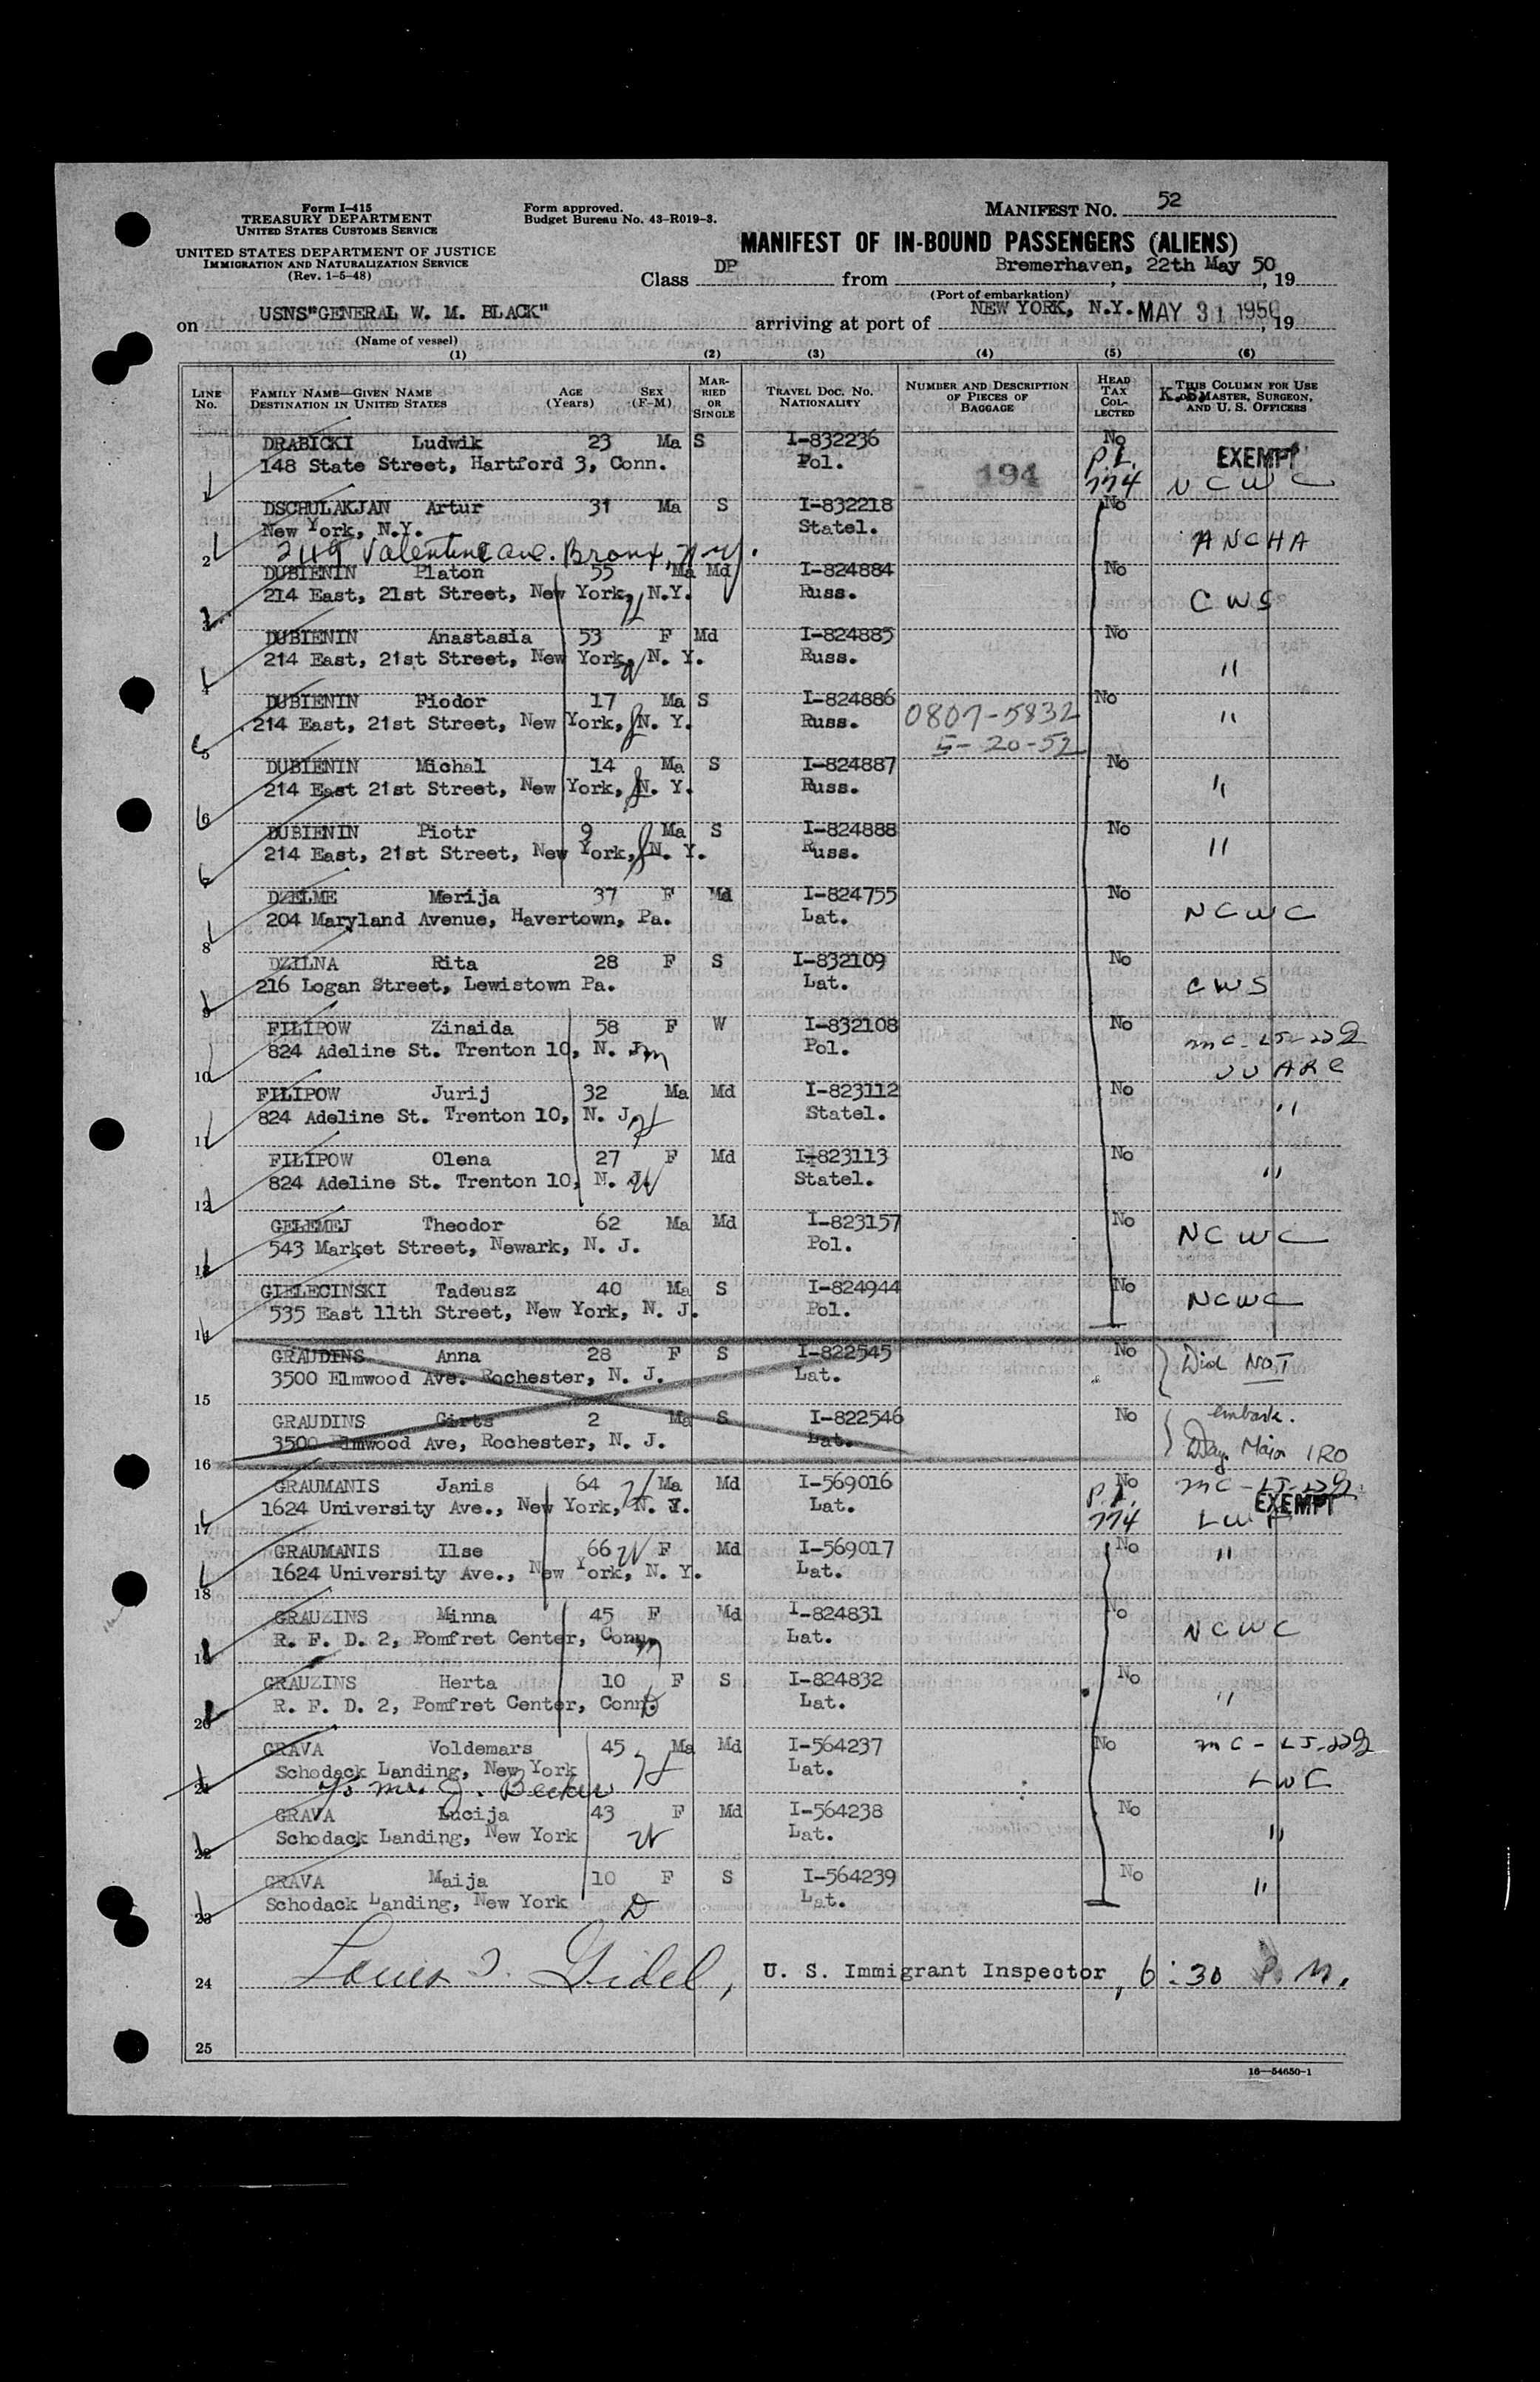 Form I-415
TREASURY DEPARTMENT
UNITED STATES CUSTOMS SERVICE
UNITED STATES DEPARTMENT OF JUSTICE
IMMIGRATION AND NATURALIZATION SERVICE
(Rev. 1-5-48)
Form approved.
Budget Bureau No. 43-R019-3.
MANIFEST NO. 52
MANIFEST OF IN-BOUND PASSENGERS (ALIENS)
Class DP from Bremerhaven, 22th May 50, 19
(Port of embarkation)
on USNS"GENERAL W. M. BLACK" arriving at port of NEW YORK, N.Y. MAY 31 1950, 19
(Name of vessel)
(1) (2) (3) (4) (5) (6)
LINE No. FAMILY NAME—GIVEN NAME DESTINATION IN UNITED STATES AGE (Years) SEX (F-M) MARRIED OR SINGLE TRAVEL DOC. NO. NATIONALITY NUMBER AND DESCRIPTION OF PIECES OF BAGGAGE HEAD TAX COLLECTED THIS COLUMN FOR USE OF MASTER, SURGEON, AND U. S. OFFICERS
DRABICKI Ludwik 23 Ma S I-832236 No EXEMPT
148 State Street, Hartford 3, Conn. Pol. 194 P.L. 774 NCWC
DSCHULAKJAN Artur 31 Ma S I-832218 No
New York, N.Y. Statel. ANCHA
2 2119 Valentine ave. Bronx, N.Y.
DUBIENIN Platon 55 Ma Md I-824884 No
214 East, 21st Street, New York, N.Y. Russ. CWS
3
DUBIENIN Anastasia 53 F Md I-824885 No
214 East, 21st Street, New York, N. Y. Russ. "
4
DUBIENIN Fiodor 17 Ma S I-824886 No
214 East, 21st Street, New York, N. Y. Russ. 0807-5832 "
5 5-20-52
DUBIENIN Michal 14 Ma S I-824887 No
214 East 21st Street, New York, N. Y. Russ. "
6
DUBIENIN Piotr 9 Ma S I-824888 No
214 East, 21st Street, New York, N. Y. Russ. "
7
DZELME Merija 37 F Md I-824755 No
204 Maryland Avenue, Havertown, Pa. Lat. NCWC
8
DZILNA Rita 28 F S I-832109 No
216 Logan Street, Lewistown Pa. Lat. CWS
9
FILIPOW Zinaida 58 F W I-832108 No
824 Adeline St. Trenton 10, N. J. Pol.
10
FILIPOW Jurij 32 Ma Md I-823112 No
824 Adeline St. Trenton 10, N. J. Statel. "
11
FILIPOW Olena 27 F Md I-823113 No
824 Adeline St. Trenton 10, N. J. Statel. "
12
GELEMEJ Theodor 62 Ma Md I-823157 No
543 Market Street, Newark, N. J. Pol. NCWC
13
GIELECINSKI Tadeusz 40 Ma S I-824944 No
535 East 11th Street, New York, N. J. Pol. NCWC
14
GRAUDINS Anna 28 F S I-822545 No Did NOT
3500 Elmwood Ave. Rochester, N. J. Lat.
15
GRAUDINS Girts 2 Ma S I-822546 No embark.
3500 Elmwood Ave, Rochester, N. J. Lat. Major IRO
16
GRAUMANIS Janis 64 Ma Md I-569016 No
1624 University Ave., New York, N. Y. Lat. P.L. 774 EXEMPT
17
GRAUMANIS Ilse 66 F Md I-569017 No "
1624 University Ave., New York, N. Y. Lat.
18
GRAUZINS Minna 45 F Md I-824831 No
R. F. D. 2, Pomfret Center, Conn. Lat. NCWC
19
GRAUZINS Herta 10 F S I-824832 No
R. F. D. 2, Pomfret Center, Conn. Lat. "
20
GRAVA Voldemars 45 Ma Md I-564237 No
Schodack Landing, New York Lat.
21 % Mr. J. Becker
GRAVA Lucija 43 F Md I-564238 No
Schodack Landing, New York Lat. "
22
GRAVA Maija 10 F S I-564239 No
Schodack Landing, New York Lat. "
23
24 Louis Gidel, U. S. Immigrant Inspector, 6:30 P.M.
25
16—54650-1